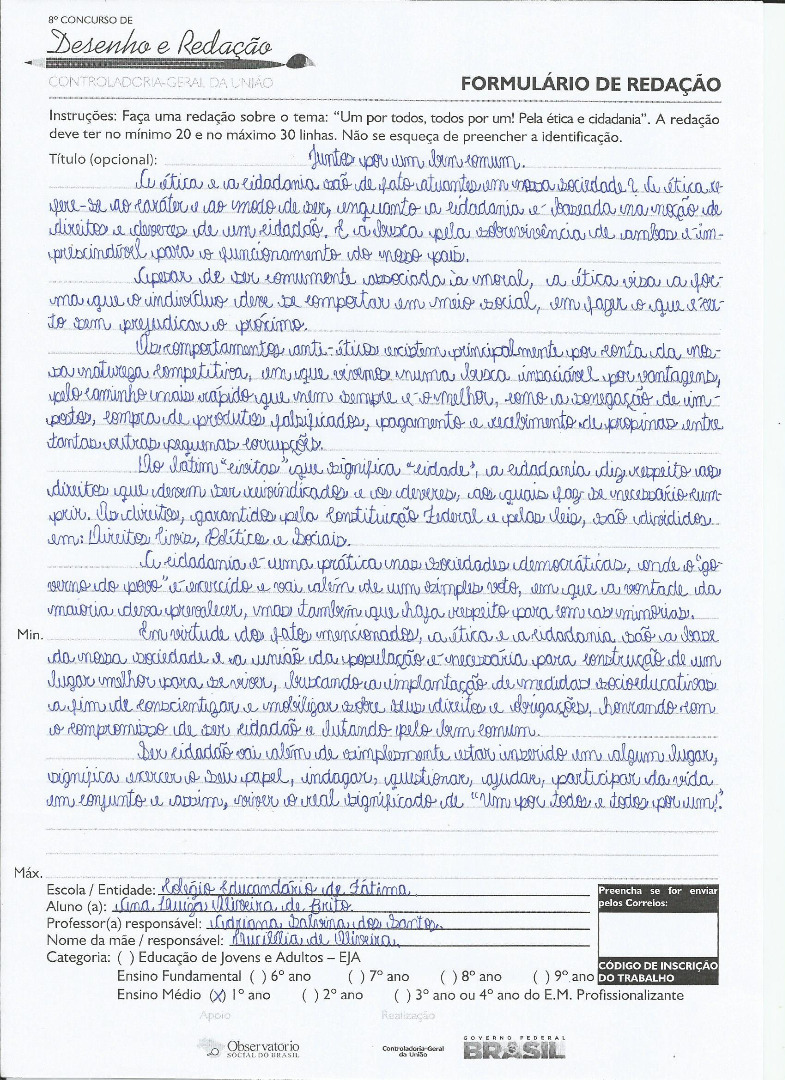 8º CONCURSO DE
Desenho e Redação
CONTROLADORIA-GERAL DA UNIÃO
FORMULÁRIO DE REDAÇÃO
Instruções: Faça uma redação sobre o tema: "Um por todos, todos por um! Pela ética e cidadania". A redação
deve ter no mínimo 20 e no máximo 30 linhas. Não se esqueça de preencher a identificação.
Título (opcional): Juntos por um bem comum.
A ética e a cidadania são de fato atuantes em nossa sociedade? A ética re-
fere-se ao caráter e ao modo de ser, enquanto a cidadania é baseada na noção de
direitos e deveres de um cidadão. E a busca pela sobrevivência de ambas é im-
prescindível para o funcionamento do nosso país.
Apesar de ser comumente associada à moral, a ética visa a for-
ma que o indivíduo deve se comportar em meio social, em fazer o que é cer-
to sem prejudicar o próximo.
Os comportamentos anti-éticos existem principalmente por conta da nos-
sa natureza competitiva, em que vivemos numa busca insaciável por vantagens,
pelo caminho mais rápido que nem sempre é o melhor, como a sonegação de im-
postos, compra de produtos falsificados, pagamento e recebimento de propinas entre
tantas outras pequenas corrupções.
Do latim "civitas" que significa "cidade", a cidadania diz respeito aos
direitos que devem ser reivindicados e os deveres, aos quais faz se necessário cum-
prir. Os direitos, garantidos pela Constituição Federal e pelas leis, são divididos
em: Direitos Civis, Políticos e Sociais.
A cidadania é uma prática nas sociedades democráticas, onde o "go-
verno do povo" é exercido e vai além de um simples voto, em que a vontade da
maioria deva prevalecer, mas também que haja respeito para com as minorias.
Min. Em virtude dos fatos mencionados, a ética e a cidadania são a base
da nossa sociedade e a união da população é necessária para construção de um
lugar melhor para se viver, buscando a implantação de medidas socioeducativas
a fim de conscientizar e mobilizar sobre seus direitos e obrigações, honrando com
o compromisso de ser cidadão e lutando pelo bem comum.
Ser cidadão vai além de simplesmente estar inserido em algum lugar,
significa exercer o seu papel, indagar, questionar, ajudar, participar da vida
em conjunto e assim, viver o real significado de "Um por todos e todos por um!"
Máx.
Escola / Entidade: Colégio Educandário de Fátima
Aluno (a): Ana Luiza Oliveira de Brito
Professor(a) responsável: Adriana Sabrina dos Santos
Nome da mãe / responsável: de Oliveira
Categoria: ( ) Educação de Jovens e Adultos – EJA
Ensino Fundamental ( ) 6º ano ( ) 7º ano ( ) 8º ano ( ) 9º ano
Ensino Médio (X) 1º ano ( ) 2º ano ( ) 3º ano ou 4º ano do E.M. Profissionalizante
Preencha se for enviar
pelos Correios:
CÓDIGO DE INSCRIÇÃO
DO TRABALHO
Apoio
Realização
Observatorio
SOCIAL DO BRASIL
Controladoria-Geral
da União
GOVERNO FEDERAL
BRASIL